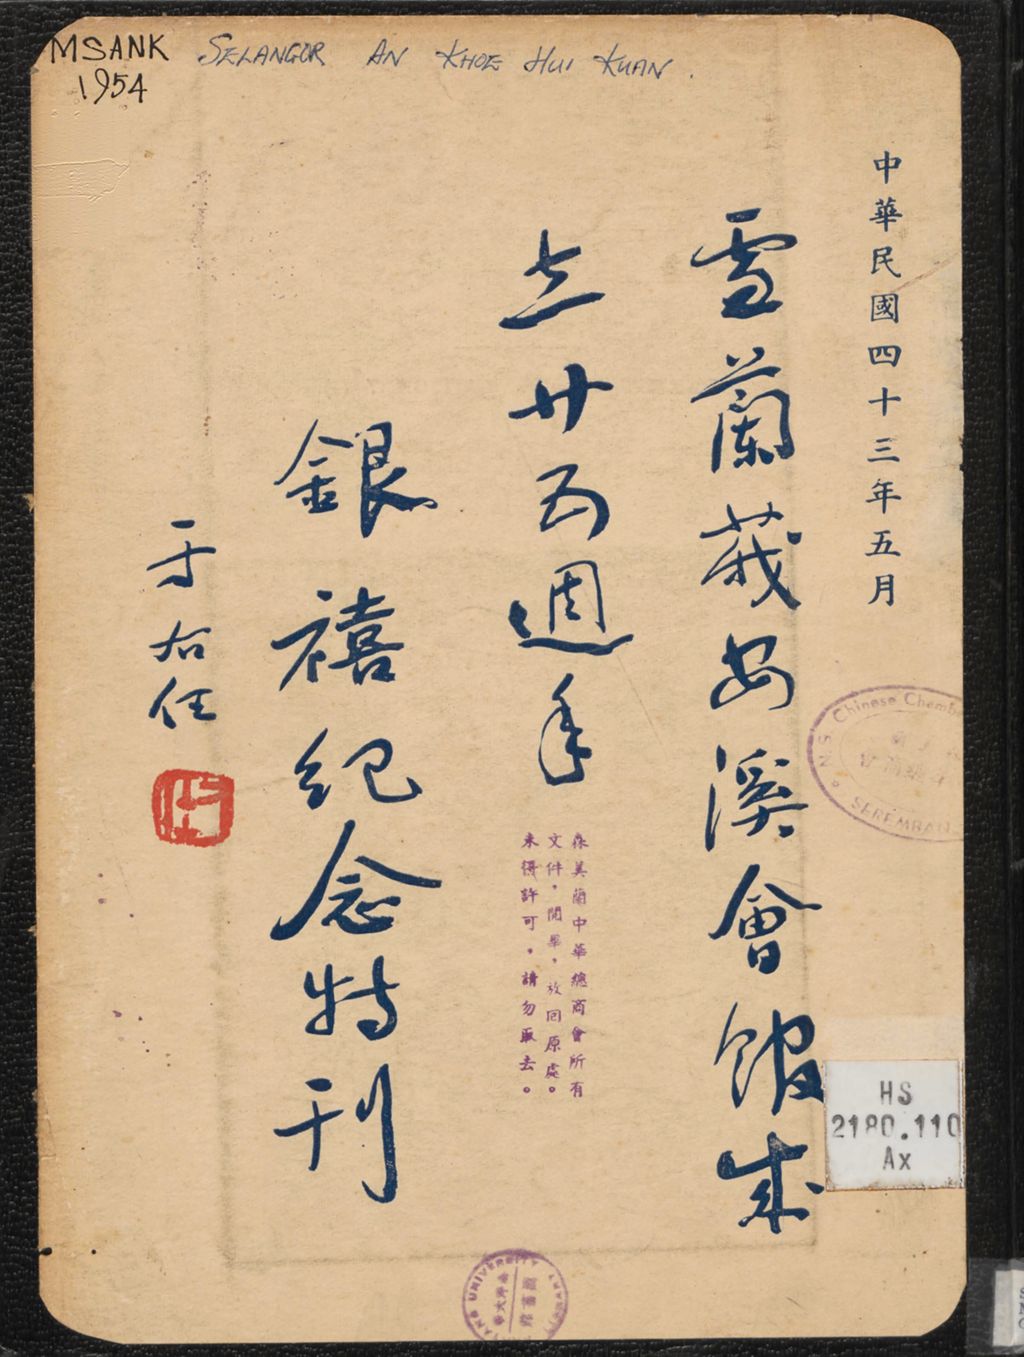 MSANK
1954
SELANGOR AN KHOE HUI KUAN.
中華民國四十三年五月
雪蘭莪安溪會館成
立廿五週年
銀禧紀念特刊
于右任
N.S. Chinese Chamb
SEREMBAN
森美蘭中華總商會所有
文件，閱畢，放回原處。
未得許可，請勿取去。
HS
2180.110
Ax
UNIVERSITY